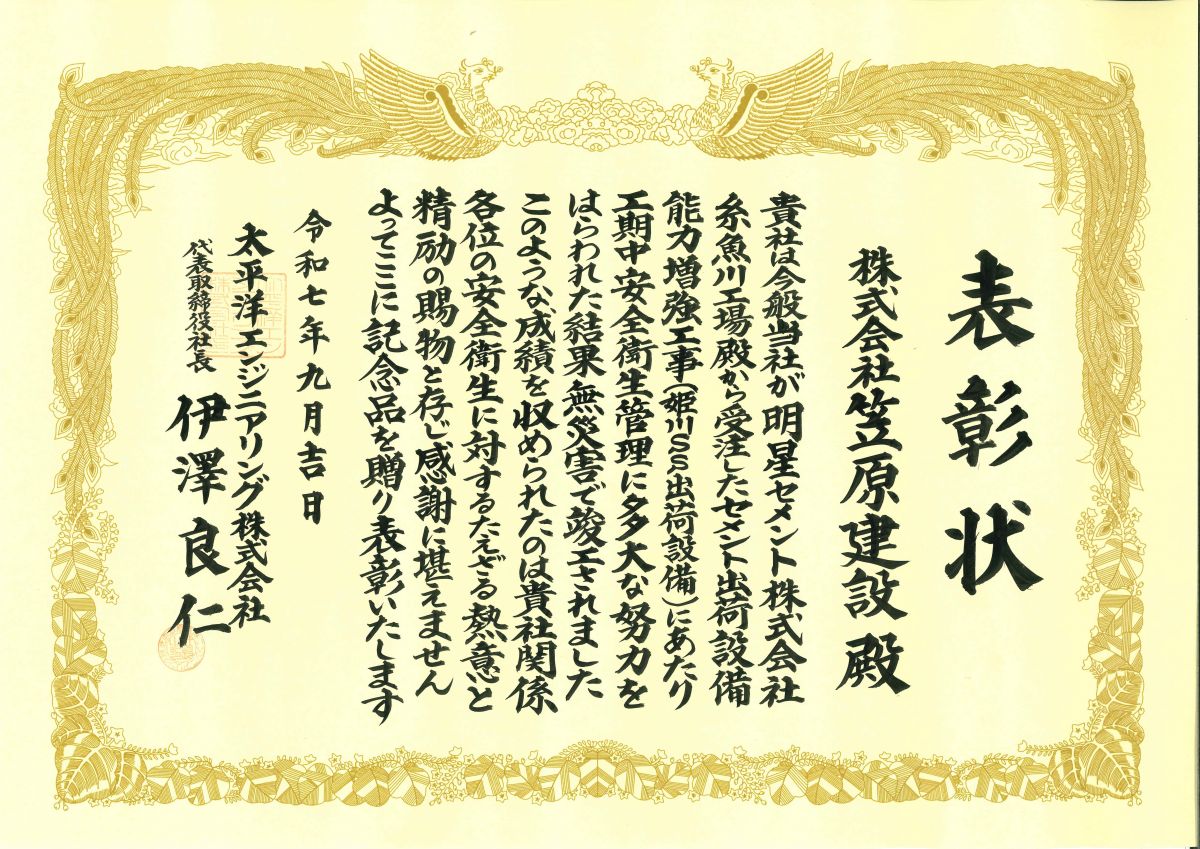 表彰状
株式会社笠原建設 殿
貴社は今般当社が明星セメント株式会社
糸魚川工場殿から受注したセメント出荷設備
能力増強工事(姫川SS出荷設備)にあたり
工期中安全衛生管理に多大な努力を
はらわれた結果無災害で竣工されました
このような成績を収められたのは貴社関係
各位の安全衛生に対するたえざる熱意と
精励の賜物と存じ感謝に堪えません
よってここに記念品を贈り表彰いたします
令和七年九月吉日
太平洋エンジニアリング株式会社
代表取締役社長 伊澤良仁